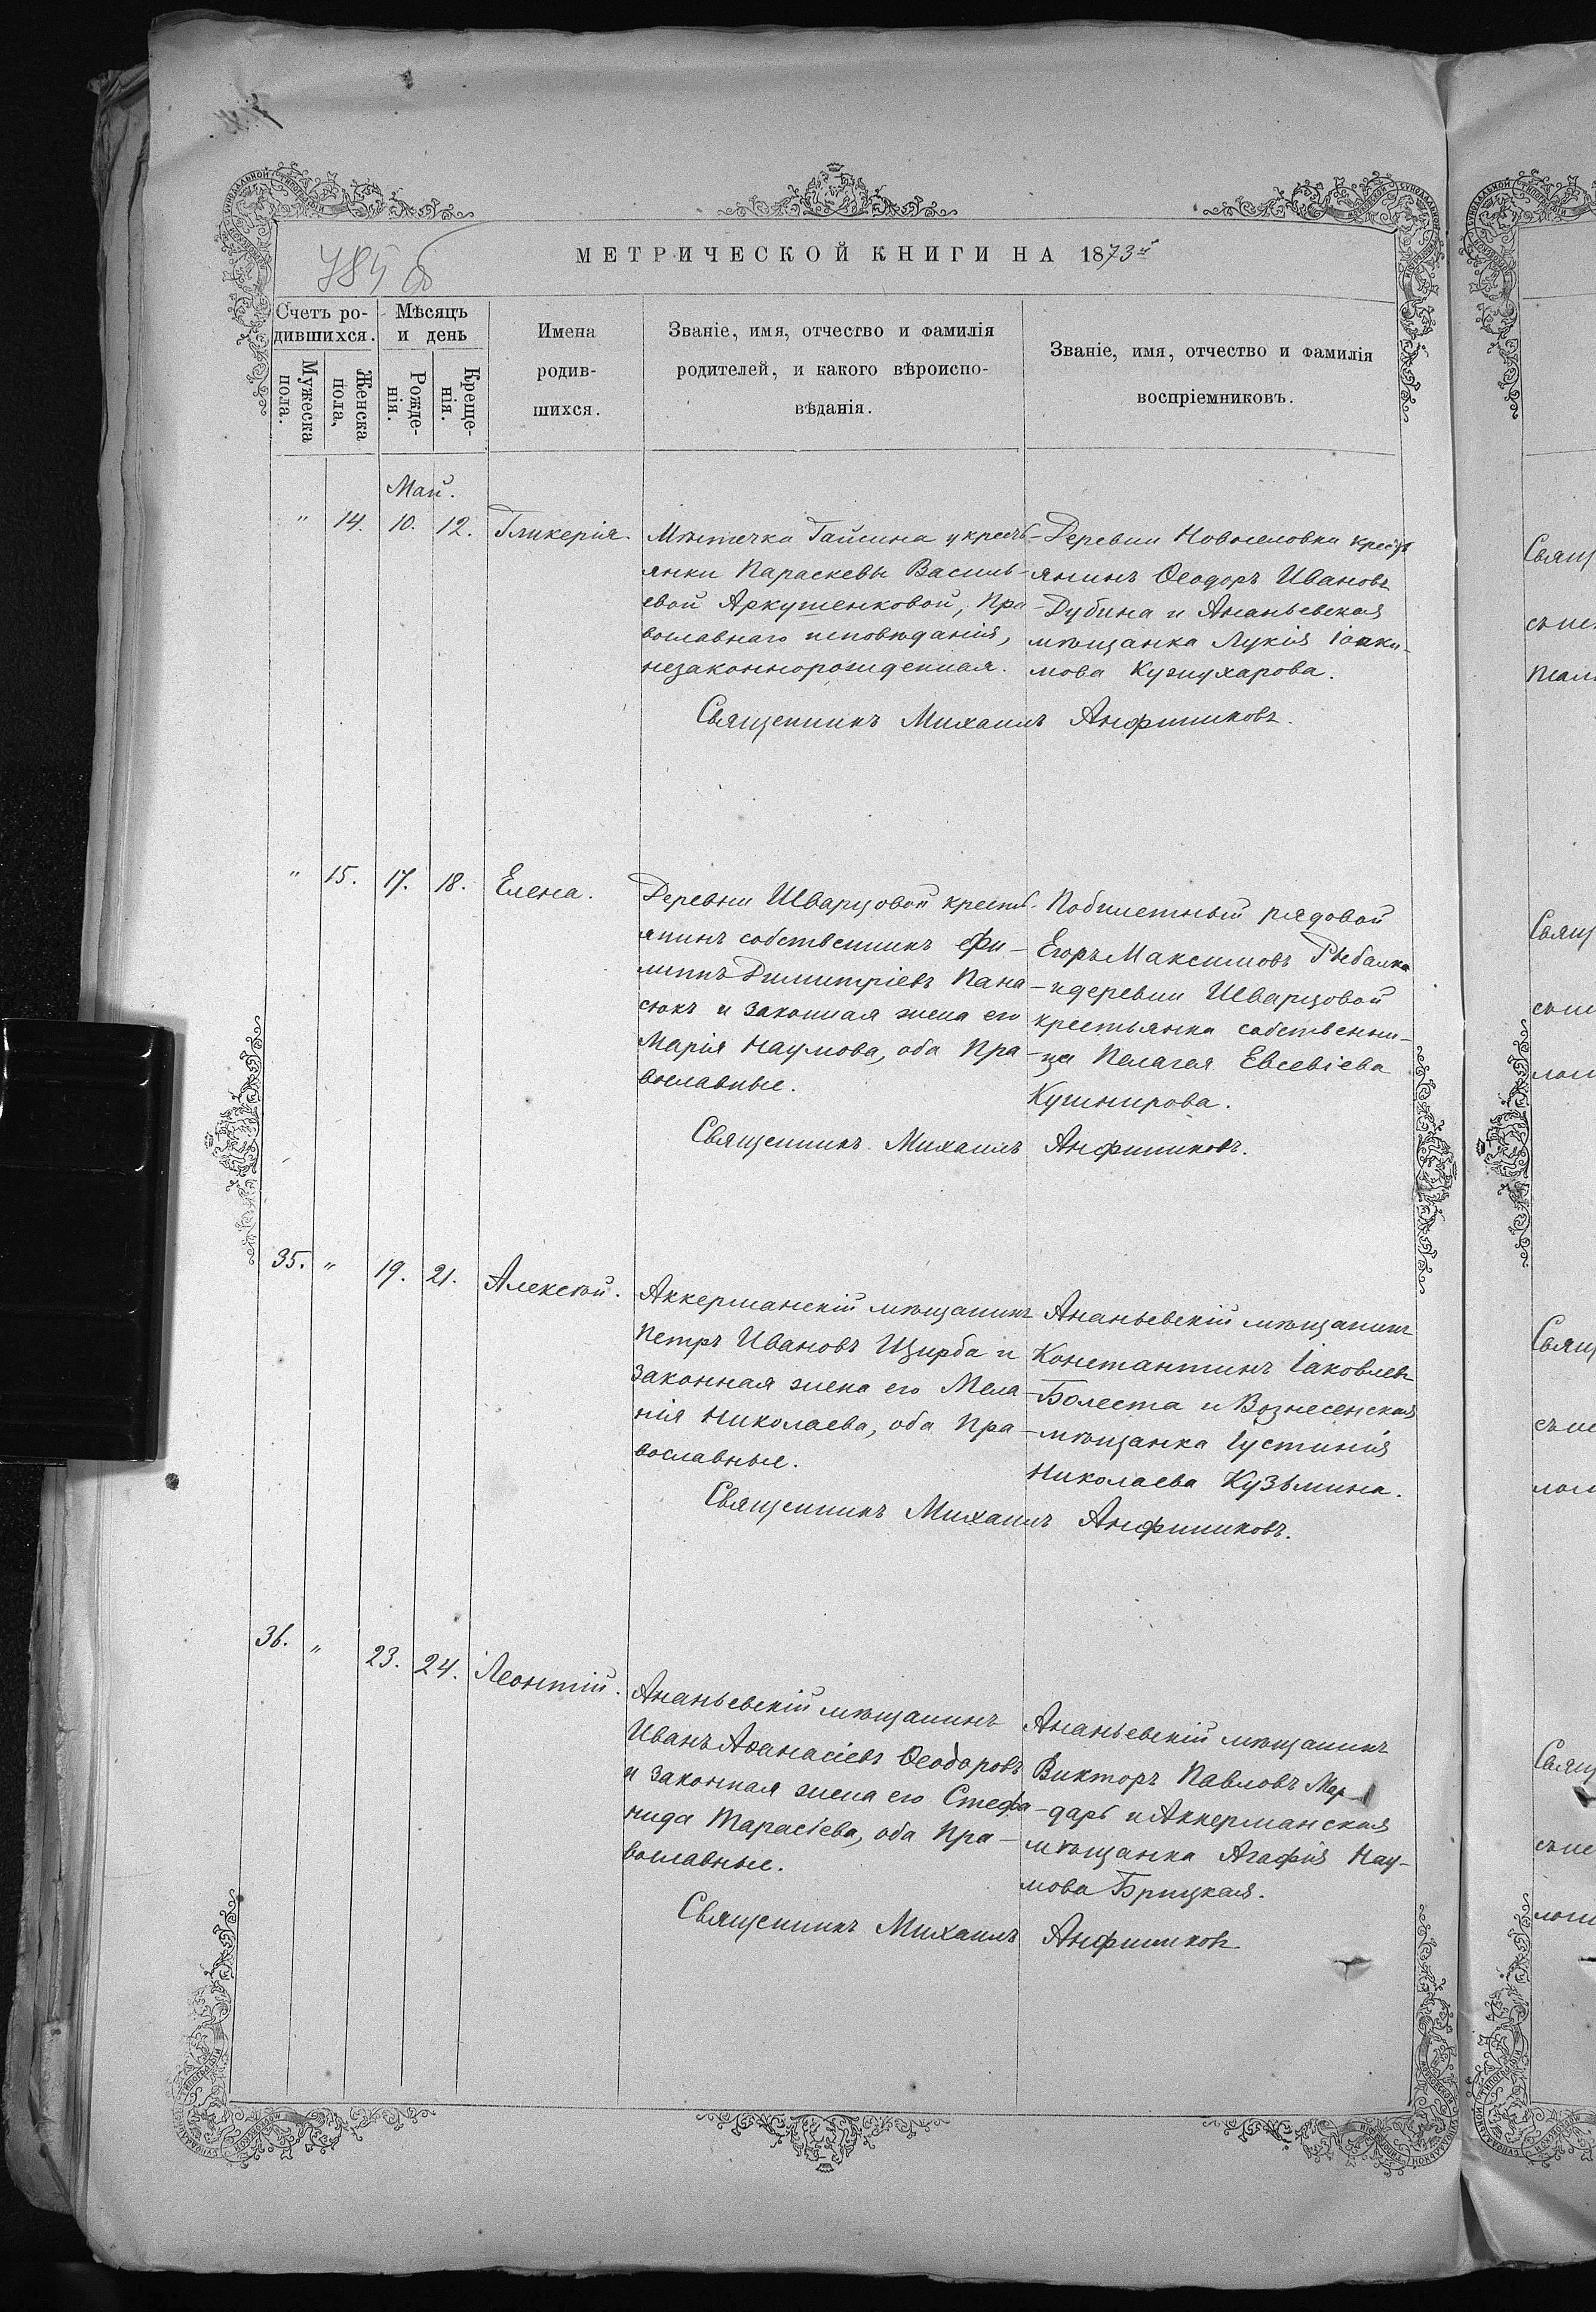 МЕТРИЧЕСКОЙ КНИГИ НА 1873й
Счетъ ро-
дившихся.
Мужеска
пола.
Женска
пола,
Мѣсяцъ
и день
Рожде-
нія.
Креще-
нія.
Имена
родив-
шихся.
Званіе, имя, отчество и фамилія
родителей, и какого вѣроиспо-
вѣданія.
Званіе, имя, отчество и фамилія
воспріемниковъ.
Май.
" 14. 10. 12. Гликерія.
Мѣстечка Гайсина у кресть-
янки Параскевы Василь-
евой Аркушенковой, Пра-
вославнаго исповѣданія,
незаконнорожденная.
Деревни Новоселовки крестъ
янинъ Ѳеодоръ Ивановъ
Дубина и Ананьевская
мѣщанка Лукія Іоаки-
мова Кушухарова.
Священникъ Михаилъ Анфиниковъ.
" 15. 17. 18. Елена.
Деревни Шварцовой кресть-
янинъ собственникъ Фи-
липпъ Димитріевъ Пана-
сюкъ и законная жена его
Марія Наумова, оба Пра-
вославные.
Побилетный рядовой
Егоръ Максимовъ Рыбалка
и деревни Шварцовой
крестьянка собственни-
ца Пелагея Евсевіева
Кушнирова.
Священникъ Михаилъ Анфиниковъ.
35. " 19. 21. Алексѣй.
Аккерманскій мѣщанинъ
Петръ Ивановъ Щирба и
законная жена его Мела-
нія Николаева, оба Пра-
вославные.
Ананьевскій мѣщанинъ
Константинъ Іаковлевъ
Болеста и Вознесенская
мѣщанка Іустинія
Николаева Кузьмина.
Священникъ Михаилъ Анфиниковъ.
36. " 23. 24. Леонтій.
Ананьевскій мѣщанинъ
Иванъ Аѳанасіевъ Ѳеодоровъ
и законная жена его Стефа-
нида Тарасіева, оба Пра-
вославные.
Ананьевскій мѣщанинъ
Викторъ Павловъ Мер-
дарь и Аккерманская
мѣщанка Агафія Нау-
мова Брицкая.
Священникъ Михаилъ Анфиниковъ